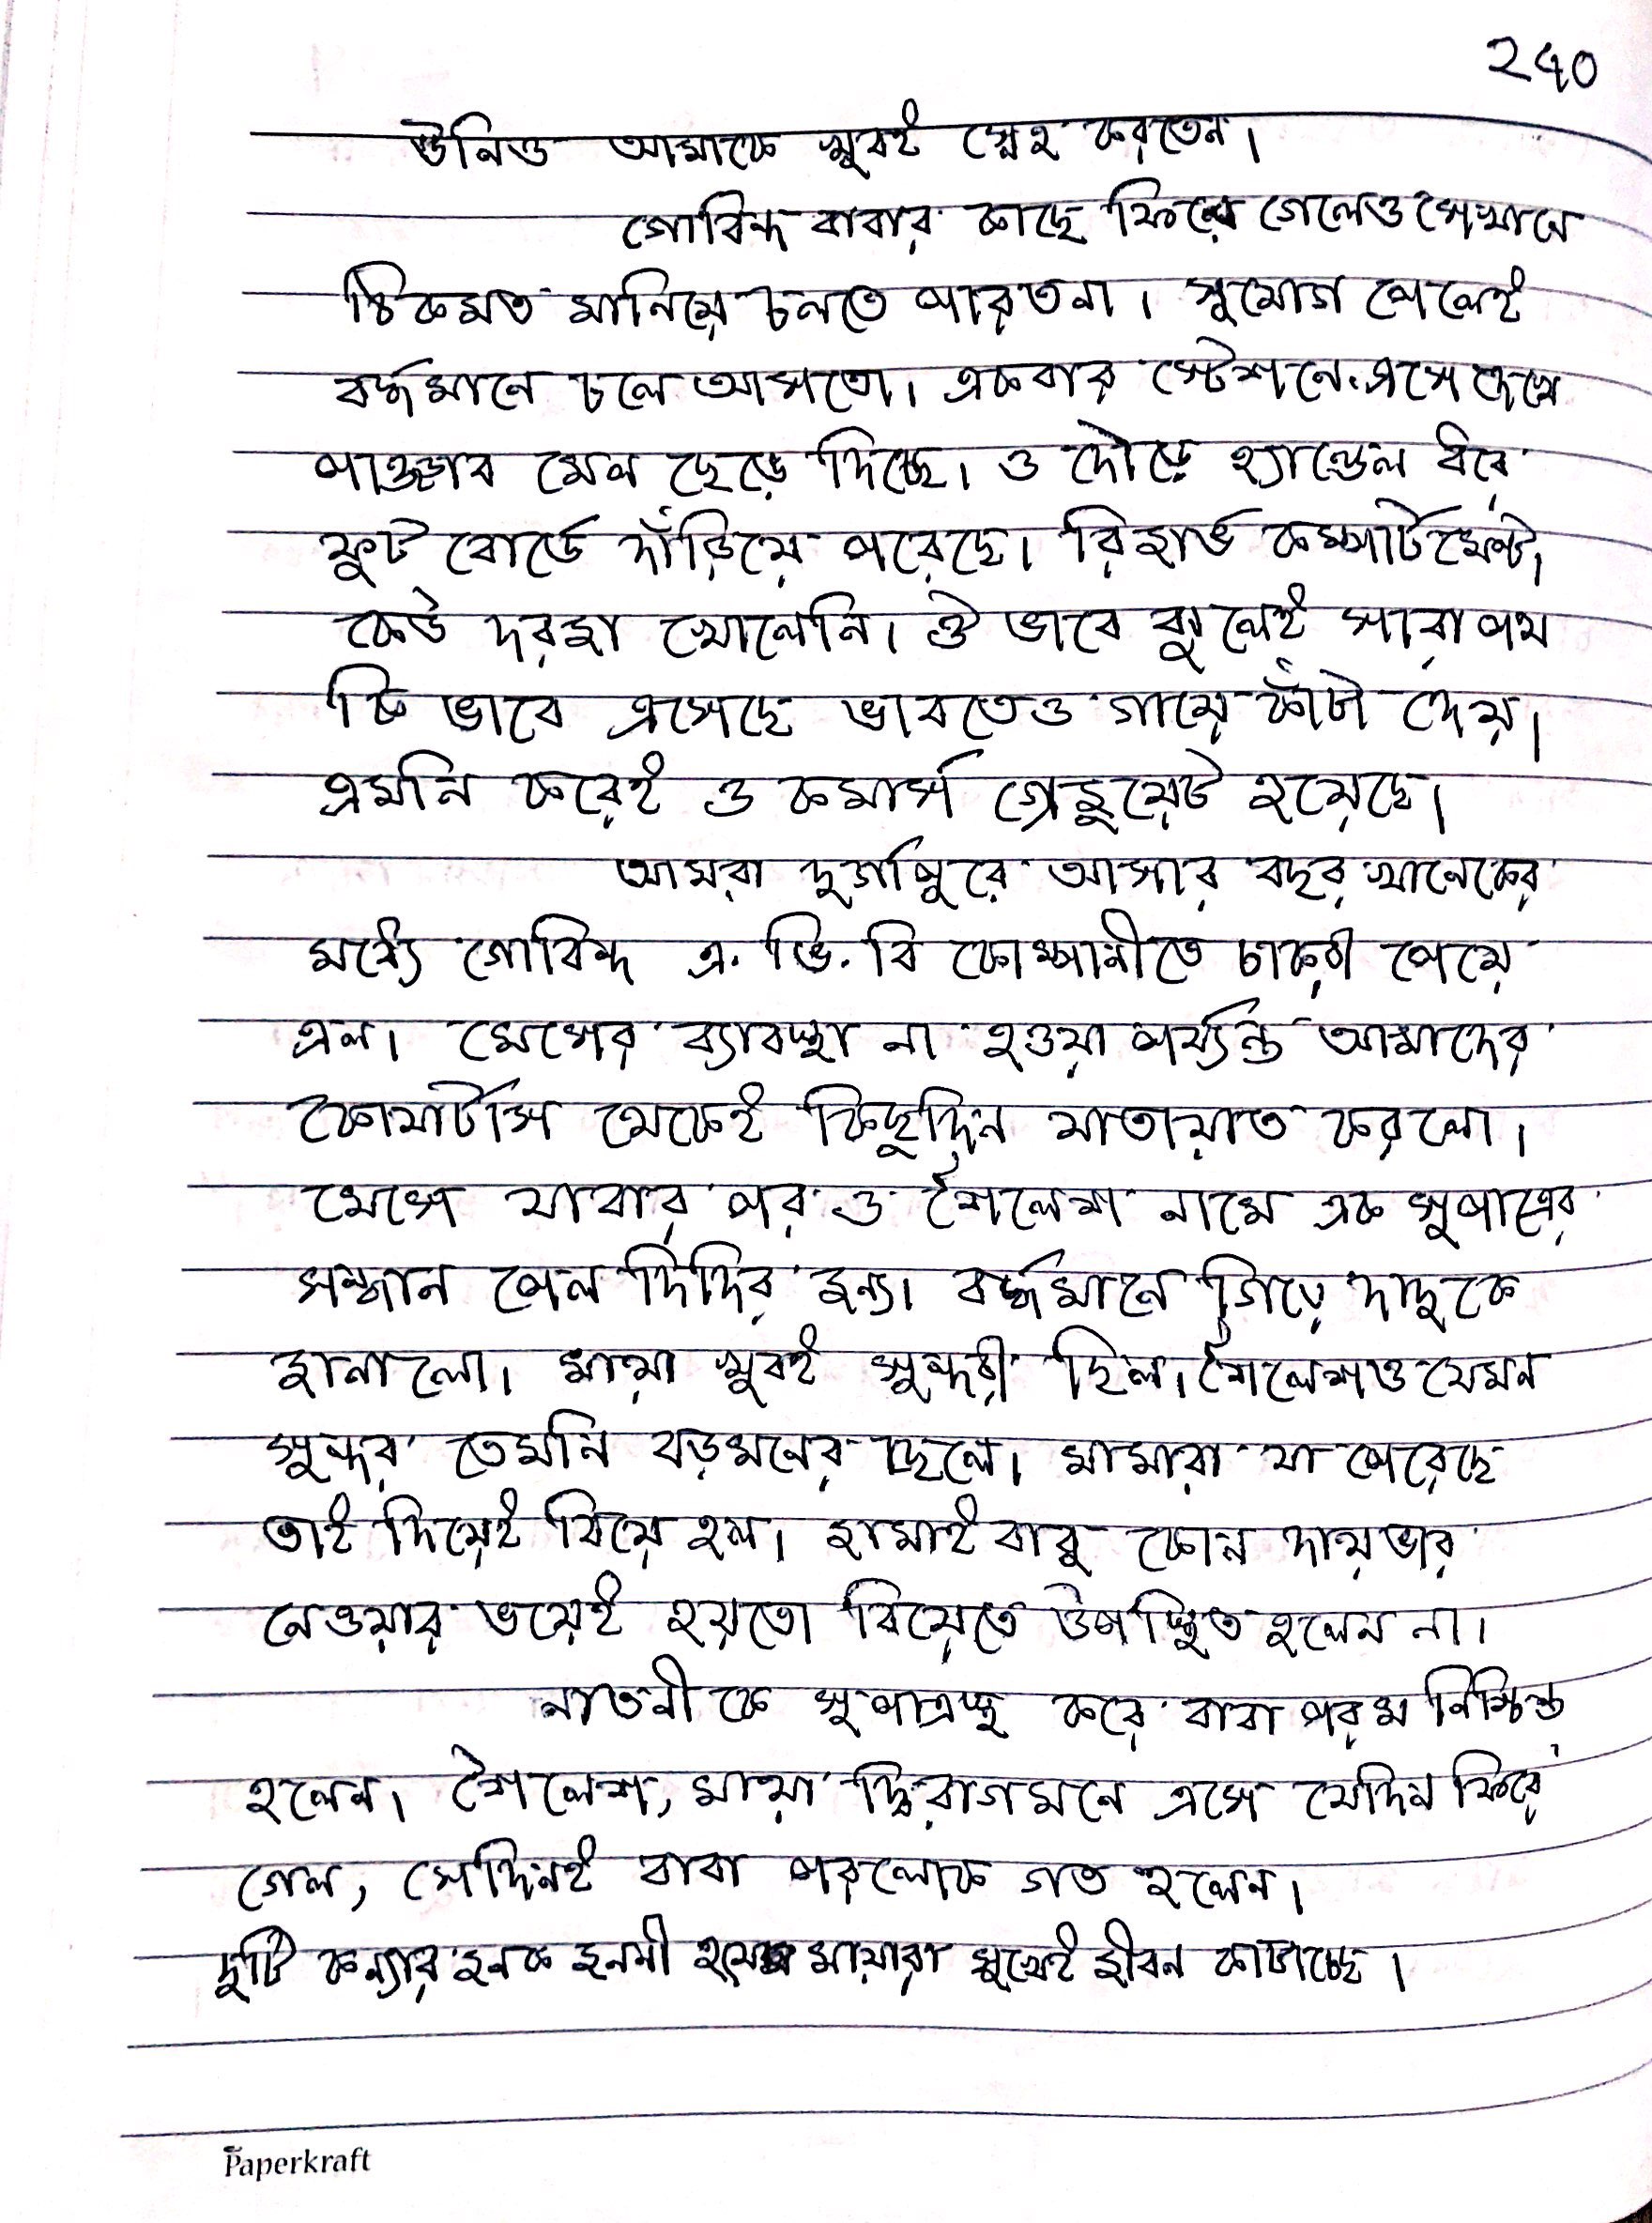 ২৫০
উনিও আমাকে খুবই স্নেহ করতেন।
গোবিন্দ বাবার কাছে ফিরে গেলেও সেখানে
ঠিকমত মানিয়ে চলতে পারতনা। সুযোগ পেলেই
বর্দ্ধমানে চলে আসতো। একবার স্টেশনে এসে দেখে
পাঞ্জাব মেল ছেড়ে দিচ্ছে। ও দৌড়ে হ্যান্ডেল ধরে
ফুট বোর্ডে দাঁড়িয়ে পরেছে। রিজার্ভ কম্পার্টমেন্ট।
কেউ দরজা খোলেনি। ঐ ভাবে ঝুলেই সারাপথ
কি ভাবে এসেছে ভাবতেও গায়ে কাঁটা দেয়।
এমনি করেই ও কমার্স গ্রেজুয়েট হয়েছে।
আমরা দুর্গাপুরে আসার বছর খানেকের
মধ্যে গোবিন্দ এ. ভি. বি কোম্পানীতে চাকরী পেয়ে
এল। মেসের ব্যাবস্থা না হওয়া পর্য্যন্ত আমাদের
কোয়ার্টাস থেকেই কিছুদিন যাতায়াত করলো।
মেসে যাবার পর ও শৈলেশ নামে এক সুপাত্রের
সন্ধান পেল দিদির জন্য। বর্দ্ধমানে গিয়ে দাদুকে
জানালো। মায়া খুবই সুন্দরী ছিল। শৈলেশও যেমন
সুন্দর তেমনি বড়মনের ছেলে। মামারা যা পেরেছে
তাই দিয়েই বিয়ে হল। জামাই বাবু কোন দায়ভার
নেওয়ার ভয়েই হয়তো বিয়েতে উপস্থিত হলেন না।
নাতনী কে সুপাত্রস্থ করে বাবা পরম নিশ্চিন্ত
হলেন। শৈলেশ, মায়া দ্বিরাগমনে এসে যেদিন ফিরে
গেল, সেদিনই বাবা পরলোক গত হলেন।
দুটি কন্যার জনক জননী হয়ে মায়ারা সুখেই জীবন কাটাচ্ছে।
Paperkraft